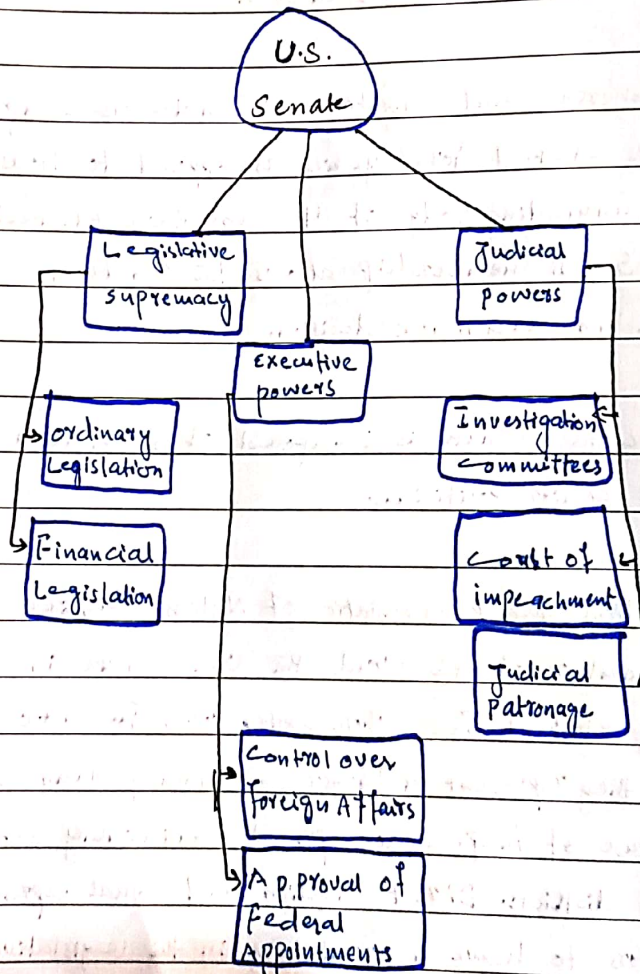 U.S.
Senate
Legislative
supremacy
Judicial
powers
Executive
powers
ordinary
Legislation
Investigation
committees
Financial
Legislation
Court of
impeachment
Judicial
Patronage
Control over
foreign Affairs
Approval of
Federal
Appointments